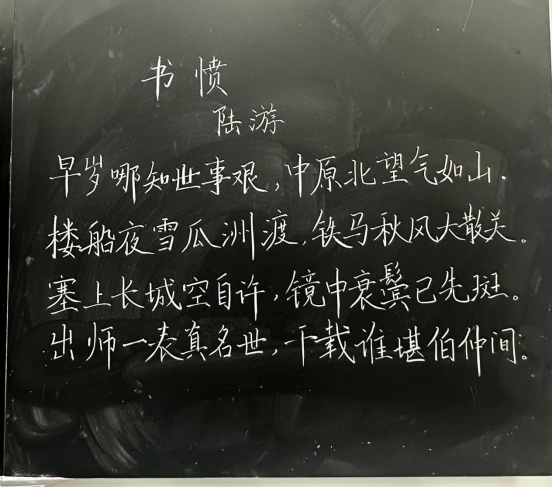 书愤
陆游
早岁哪知世事艰,中原北望气如山.
楼船夜雪瓜洲渡,铁马秋风大散关。
塞上长城空自许,镜中衰鬓已先斑。
出师一表真名世,千载谁堪伯仲间。